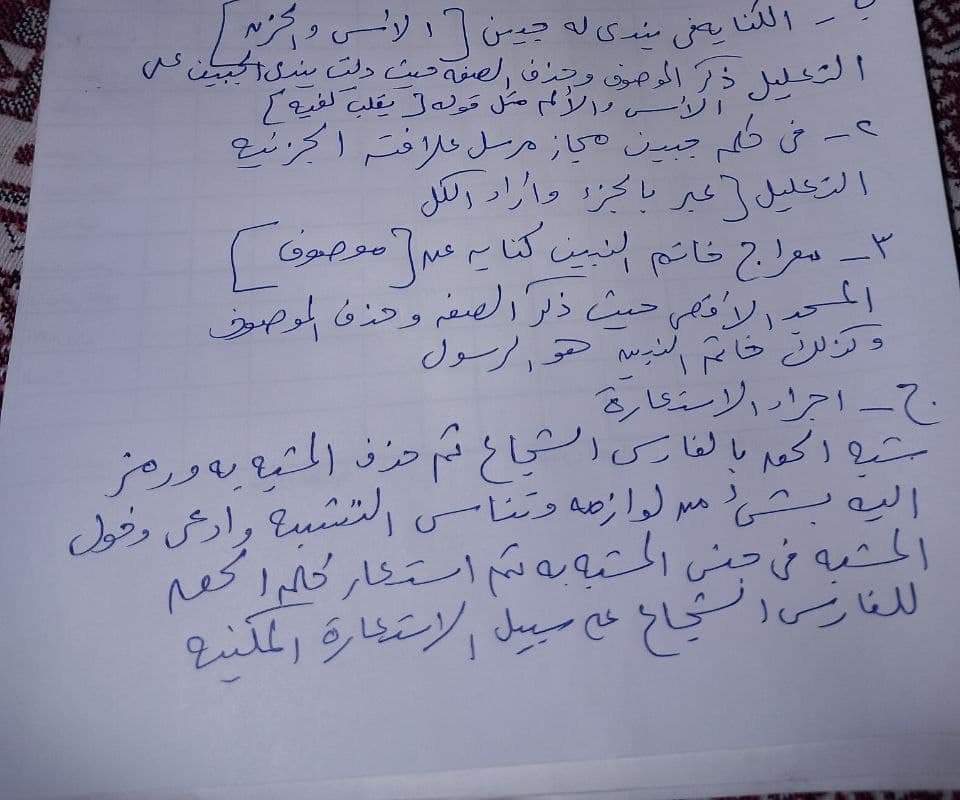 ب - الكنايه في يندى له جبين [الأسى والحزن]
التعليل ذكر الموصوف وحذف الصفه حيث دلت يندى الجبين على
الأسى والألم مثل قوله [يقلب كفيه]
٢- في كلمه جبين مجاز مرسل علاقته الجزئيه
التعليل [عبر بالجزء وأراد الكل
٣- معراج خاتم النبين كنايه عن [موصوف]
المسجد الأقصى حيث ذكر الصفه وحذف الموصوف
وكذلك خاتم النبين هو الرسول
ج - اجراء الاستعارة
شبه الحقد بالفارس الشجاع ثم حذف المشبه به ورمز
اليه بشئ من لوازمه وتناسى التشبيه وادعى دخول
المشبه في جنس المشبه به ثم استعار كلمه الحقد
للفارس الشجاع على سبيل الاستعارة المكنيه